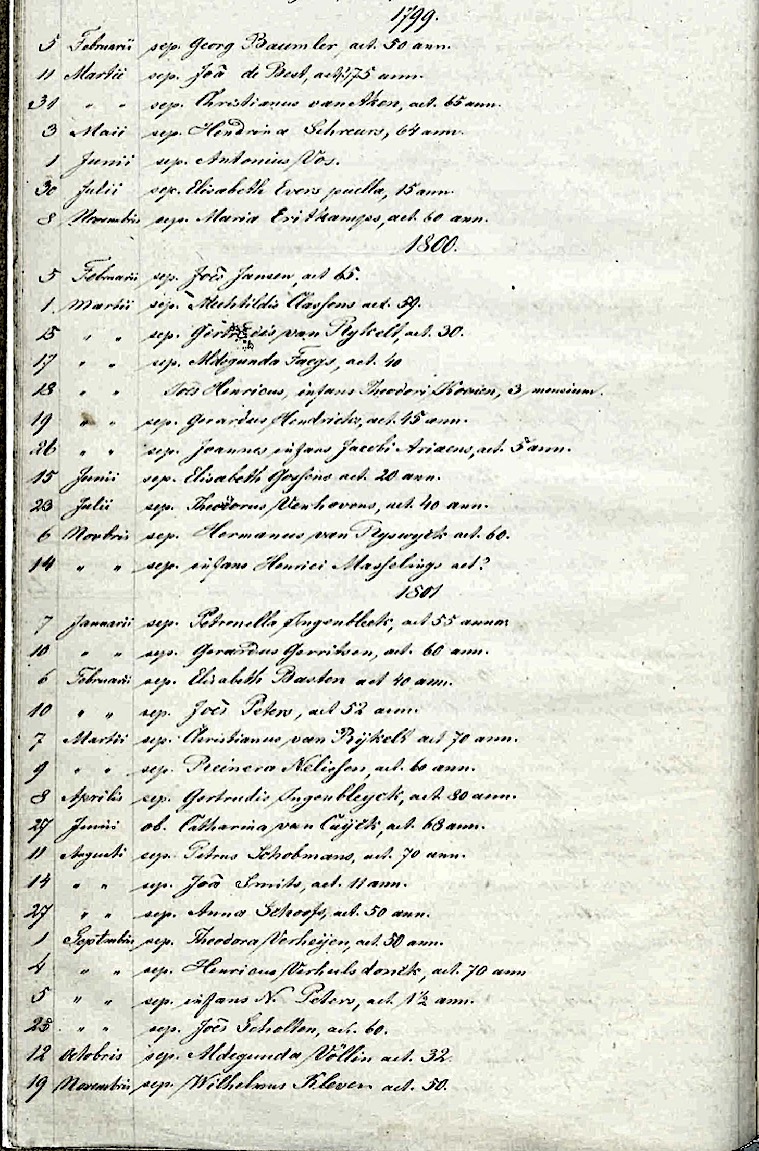 1799.
5 Februarii sep. Georg Baumler, aet. 50 ann.
11 Martii sep. Joã de Best, aet. 75 ann.
31 " " sep. Christianus van Aken, aet. 65 ann.
3 Maii sep. Hendrina Schreurs, 64 ann.
1 Junii sep. Antonius Vos.
30 Julii sep. Elisabeth Evers puella, 15 ann.
8 Novembris sep. Maria Eritkamps, aet. 60 ann.
1800.
5 Februarii sep. Joẽs Jansen, aet 65.
1 Martii sep. Mechtildis Classens aet. 59.
15 " " sep. van Rykelt, aet. 30.
17 " " sep. Aldegunda Faegs, aet. 40
18 " " Joẽs Henricus, infans Theodori Koenen, 3 mensium.
19 " " sep. Gerardus Hendricks, aet. 45 ann.
26 " " sep. Joannes infans Jacobi Ariaens, aet. 5 ann.
15 Junii sep. Elisabeth Gossens aet. 20 ann.
23 Julii sep. Theodorus Venhovens, aet. 40 ann.
6 Novbris sep. Hermanus van Ryswyck aet. 60.
14 " " sep. infans Henrici Masselings aet?
1801
7 Januarii sep. Petronella Ingenbleek, aet 55 annor
10 " " sep. Gerardus Gerritsen, aet. 60 ann.
6 Februarii sep. Elisabeth Basten aet 40 ann.
10 " " sep. Joẽs Peters, aet 52 ann.
7 Martii sep. Christianus van Rijkelt aet 70 ann.
9 " " sep. Reinera Nelissen, aet. 60 ann.
8 Aprilis sep. Gertrudis Ingenbleyck, aet. 80 ann.
27 Junii ob. Catharina van Cuijck, aet. 68 ann.
11 Augusti sep. Petrus Schobmans, aet. 70 ann.
14 " " sep. Joã Smits, aet. 11 ann.
27 " " sep. Anna Schoofs, aet. 50 ann.
1 Septmbris sep. Theodora Verheijen, aet. 50 ann.
4 " " sep. Henricus Verhulsdonck, aet. 70 ann
5 " " sep. infans N. Peters, aet. 1½ ann.
25 " " sep. Joẽs Scholten, aet. 60.
12 Octobris sep. Aldegunda Völlin aet. 32.
19 Novembris sep. Wilhelmus Kleven aet. 50.